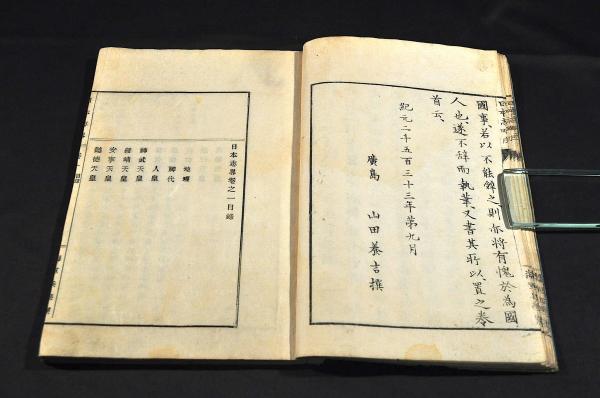 國事、若以不能鎸之、則亦將有愧於為國
人也、遂不辞而執業、又書其所以、置之卷
首云、
紀元二千五百三十三年第九月
廣島 山田養吉撰
日本志畧卷之一目錄
地理
神代
人皇
神武天皇
綏靖天皇
安寧天皇
懿德天皇